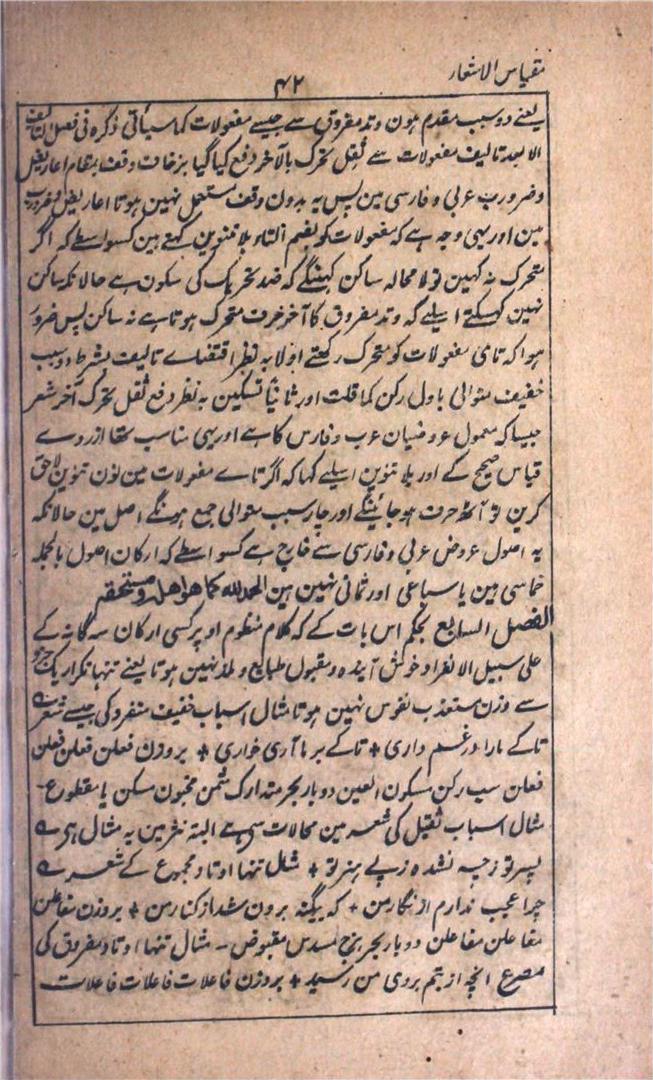 مقیاس الاشعار
۴۲
یعنے دو سبب مقدم ہون وتد مفروق سے جیسے مفعولات کما سیأتی ذکرہ فی فصل
الا بعد تالیف مفعولات سے ثقل تحرک بالآخر دفع کیا گیا بزحاف وقف بمقام اعاریض
وضروب عربی و فارسی مین پس یہ بدون وقف مستعمل نہین ہوتا اعاریض وضروب
مین اور یہی وجہ ہے کہ مفعولات کو بضم التاء بلا تنوین کہتے ہین کسواسطے کہ اگر
متحرک نہ کہین تو لا محالہ ساکن کہینگے کہ ضد تحریک کی سکون ہے حالانکہ ساکن
نہین کہسکتے اسلیے کہ وتد مفروق کا آخر حرف متحرک ہوتا ہے نہ ساکن پس ضرور
ہوا کہ تامی مفعولات کو متحرک رکھتے اولا بہ نظر اقتضاے تالیف بشرط دو سبب
خفیف متوالی باول رکن کما قلت اور ثانیاً تسکین بہ نظر دفع ثقل تحرک آخر شعر
جیسا کہ معمول عروضیان عرب و فارس کا ہے اور یہی مناسب تھا ازروے
قیاس صحیح کے اور بلا تنوین اسلیے کہا کہ اگر تاے مفعولات مین نون تنوین لاحق
کرین تو آٹھ حرف ہو جائینگے اور چار سبب متوالی جمع ہونگے اصل مین حالانکہ
یہ اصول عروض عربی و فارسی سے خارج ہے کسواسطے کہ ارکان اصول بالجملہ
خماسی ہین یا سباعی اور ثمانی نہین ہین الحمد للہ کما ھو اھلہ ومستحقہ
الفصل السابع بحکم اس بات کے کہ کلام منظوم اوپر کسی ارکان سہ گانہ کے
علی سبیل الانفراد خوش آیندہ و مقبول طبایع و لذ نہین ہوتا یعنے تنہا تکرار یک جزو
سے وزن مستعذب نفوس نہین ہوتا مثال اسباب خفیف منفرد کی جیسے شعر ے
تاکے مارا در غم داری + تاکے بر ما آری خواری + بر وزن فعلن فعلن فعلن
فعلن سب رکن بسکون العین دوبار بحر متدارک مثمن مخبون مسکن یا مقطوع ۔
مثال اسباب ثقیل کی شعر مین محالات سے ہے البتہ نثر مین یہ مثال ہے ے
پسر تو زچہ نشدہ زپے ہنر تو + مثال تنہا اوتاد مجموع کے شعر ے
چرا عجب ندارم از نگار من + کہ بیگنہ برون شد از کنار من + بر وزن مفاعلن
مفاعلن مفاعلن دوبار بحر ہزج مسدس مقبوض ۔ مثال تنہا اوتاد مفروق کی
مصرع انچہ از بتم بروی من رسید + بر وزن فاعلات فاعلات فاعلات